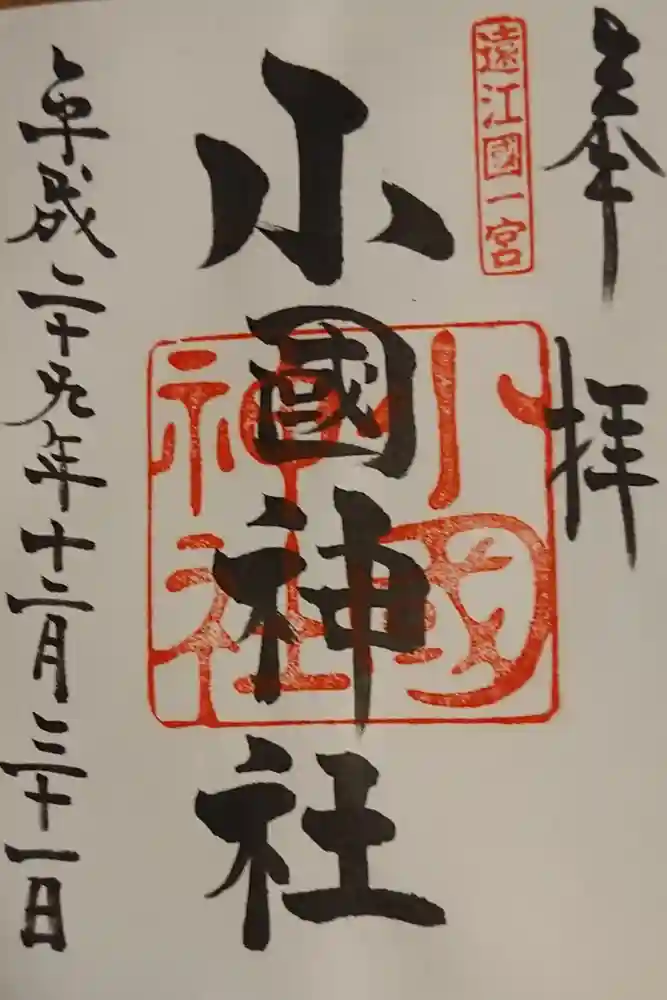 奉拝
遠江國一宮
小國神社
小國
神社
平成二十九年十二月三十一日